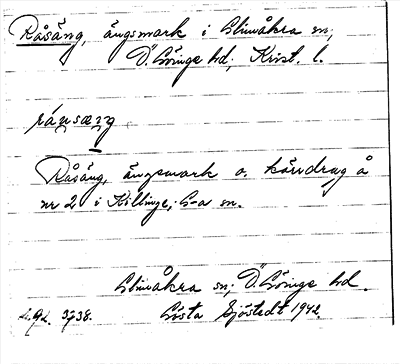 Råsäng, ängsmark i Glimåkra sn;
Ö. Göinge hd; Krist. l.
råṇsæng
Råsäng, ängsmark o. kärrdrag å
nr 2 i Killinge; G-a sn.
Glimåkra sn; Ö. Göinge hd.
Gösta Sjöstedt 1942.
3938.